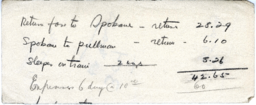 Return fare to Spokane - return 28.29
Spokane to pullman - return - 6.10
Sleeper on train 8.26
42.65
Expenses 6 days @ 10
60